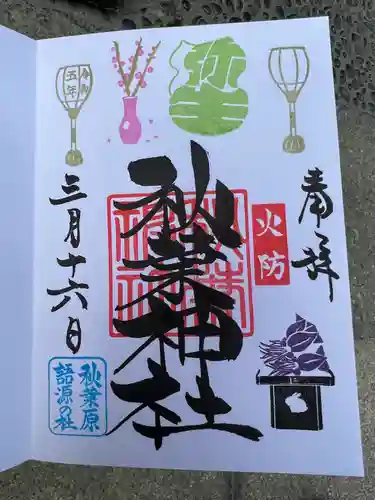 弥生
奉拝
火防
秋葉神社
令和
五年
三月十六日
秋葉原
語源の社